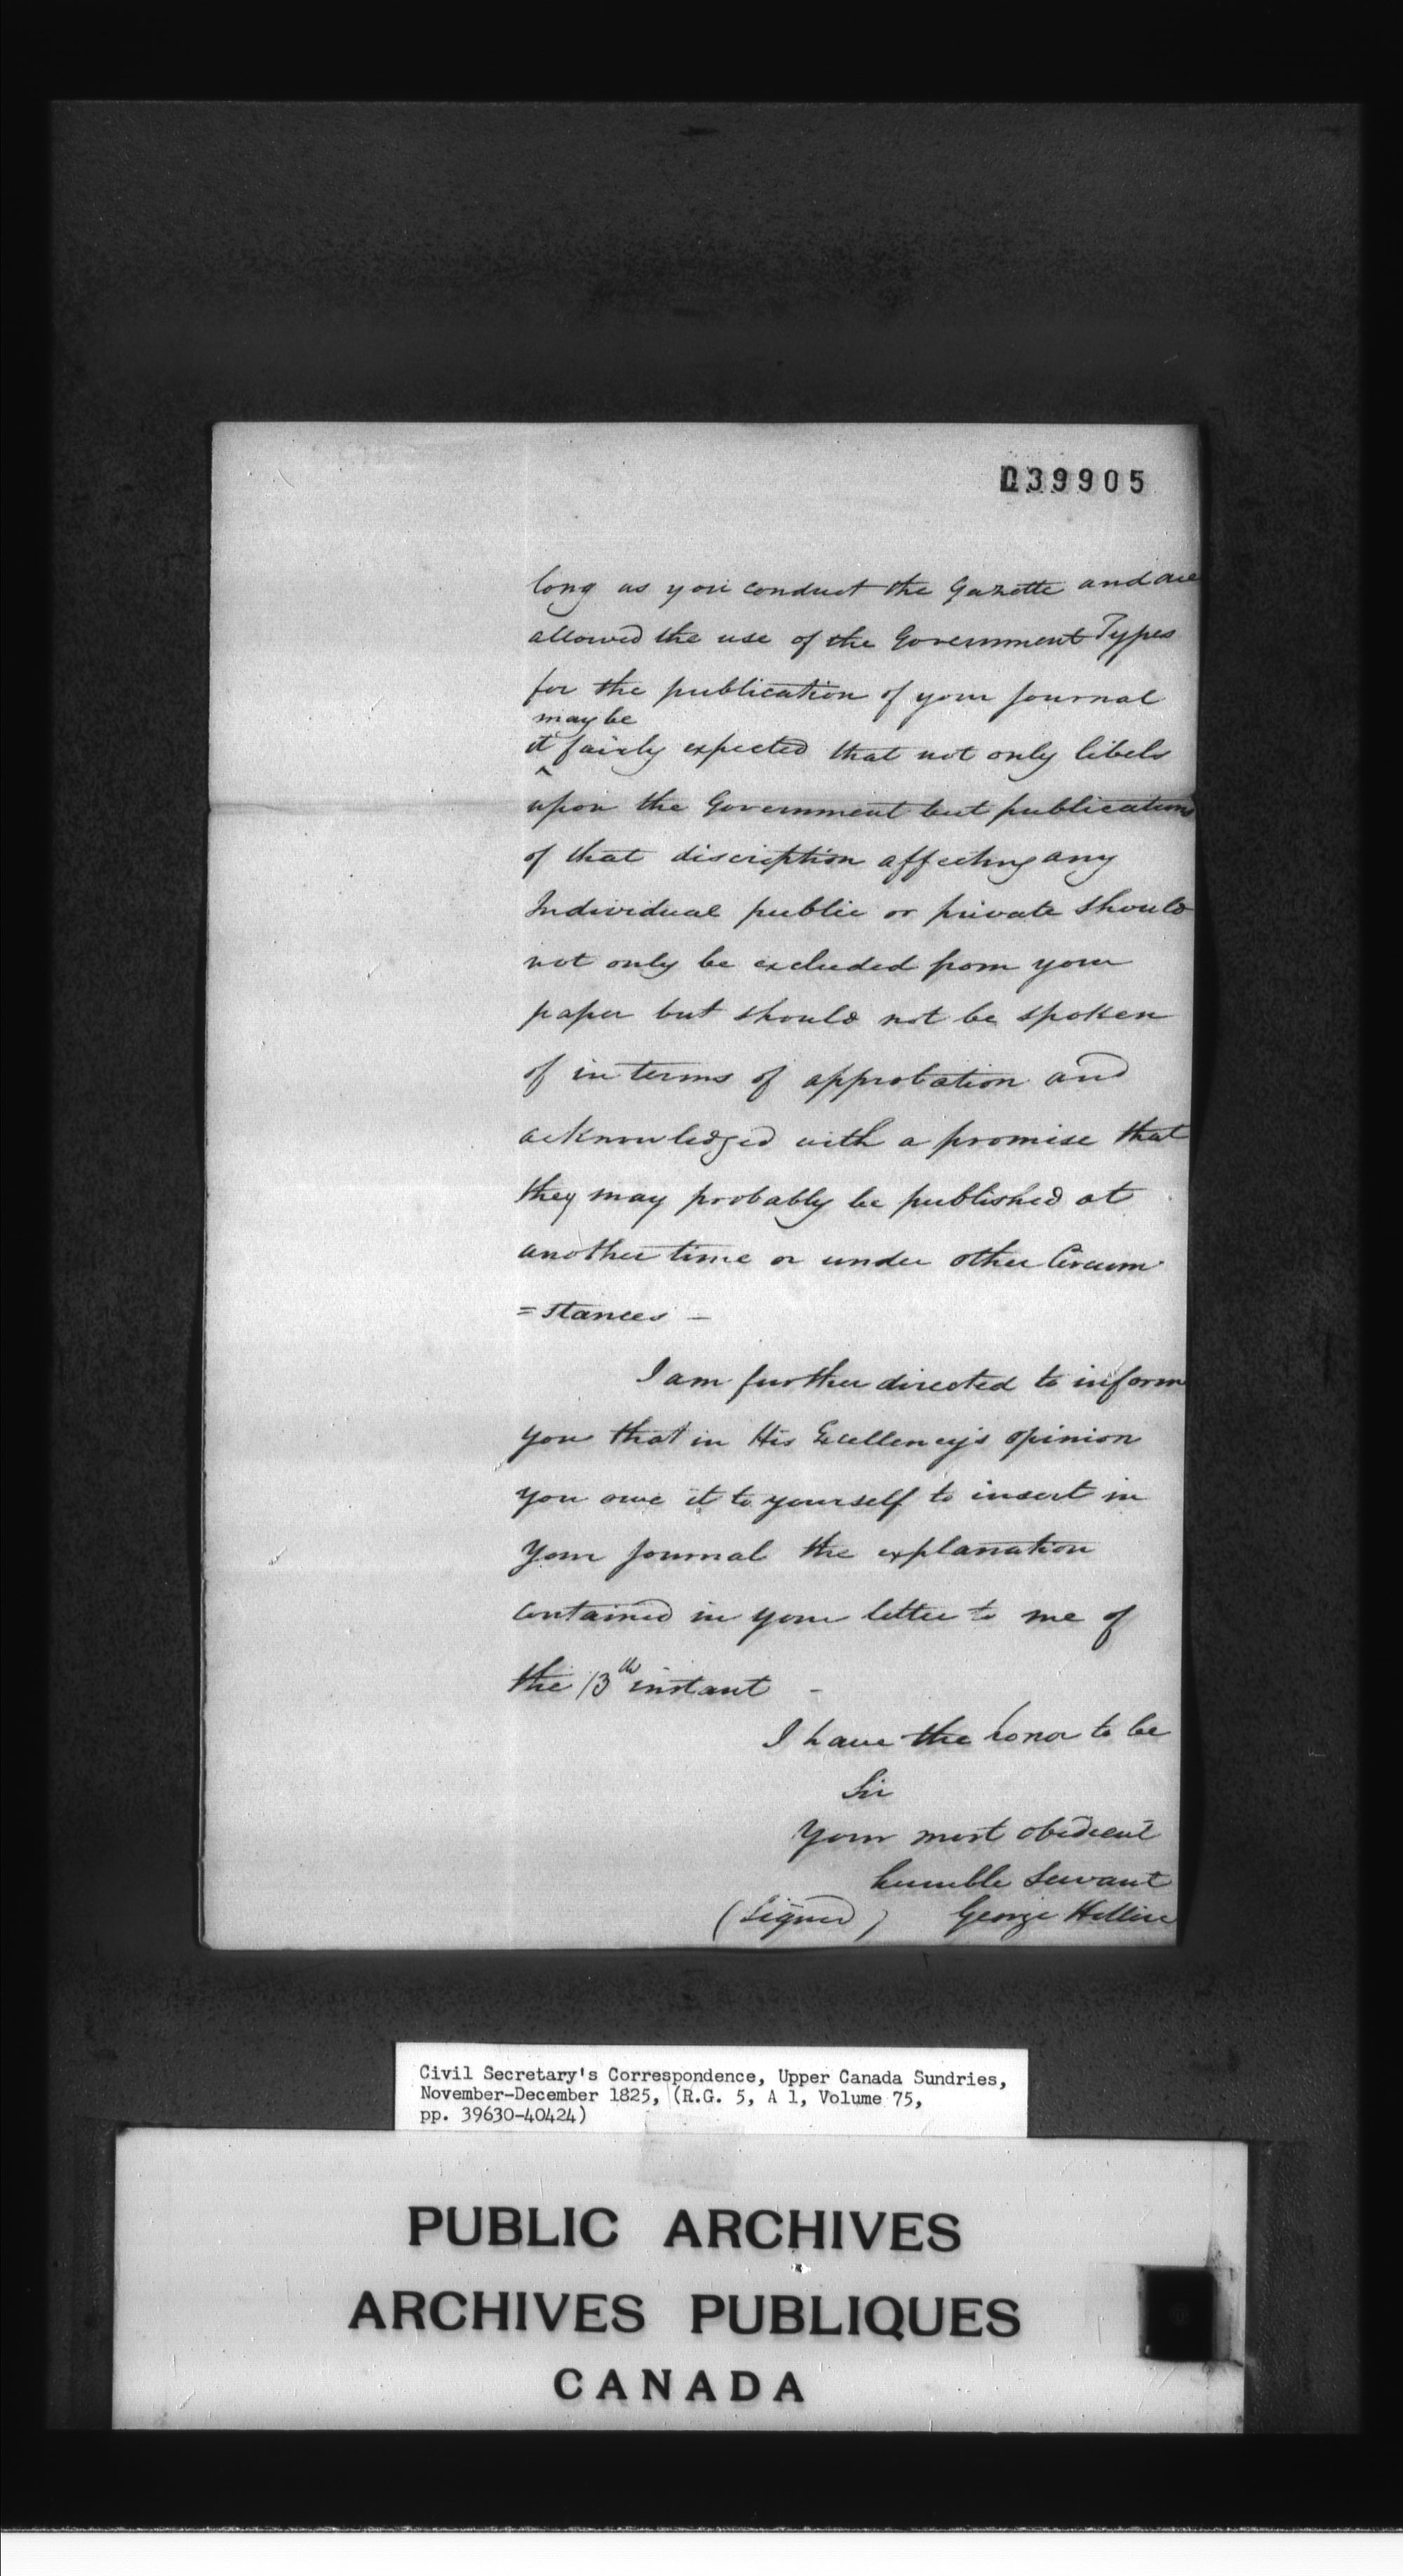 039905
long as you conduct the Gazette and are
allowed the use of the Government Types
for the publication of your Journal
may be
it fairly expected that not only libels
^
upon the Government but publications
of that discription affecting any
Individual public or private should
not only be excluded from your
paper but should not be spoken
of in terms of approbation and
acknowledged with a promise that
they may probably be published at
another time or under other Circum
=stances –
I am further directed to inform
you that in His Excellency's opinion
you owe it to yourself to insert in
your Journal the explanation
contained in your letter to me of
the 13th instant –
I have the honor to be
Sir
Your most obedient
humble Servant
(Signed) George Hillier
Civil Secretary's Correspondence, Upper Canada Sundries,
November-December 1825, (R.G. 5, A 1, Volume 75,
pp. 39630-40424)
PUBLIC ARCHIVES
ARCHIVES PUBLIQUES
CANADA